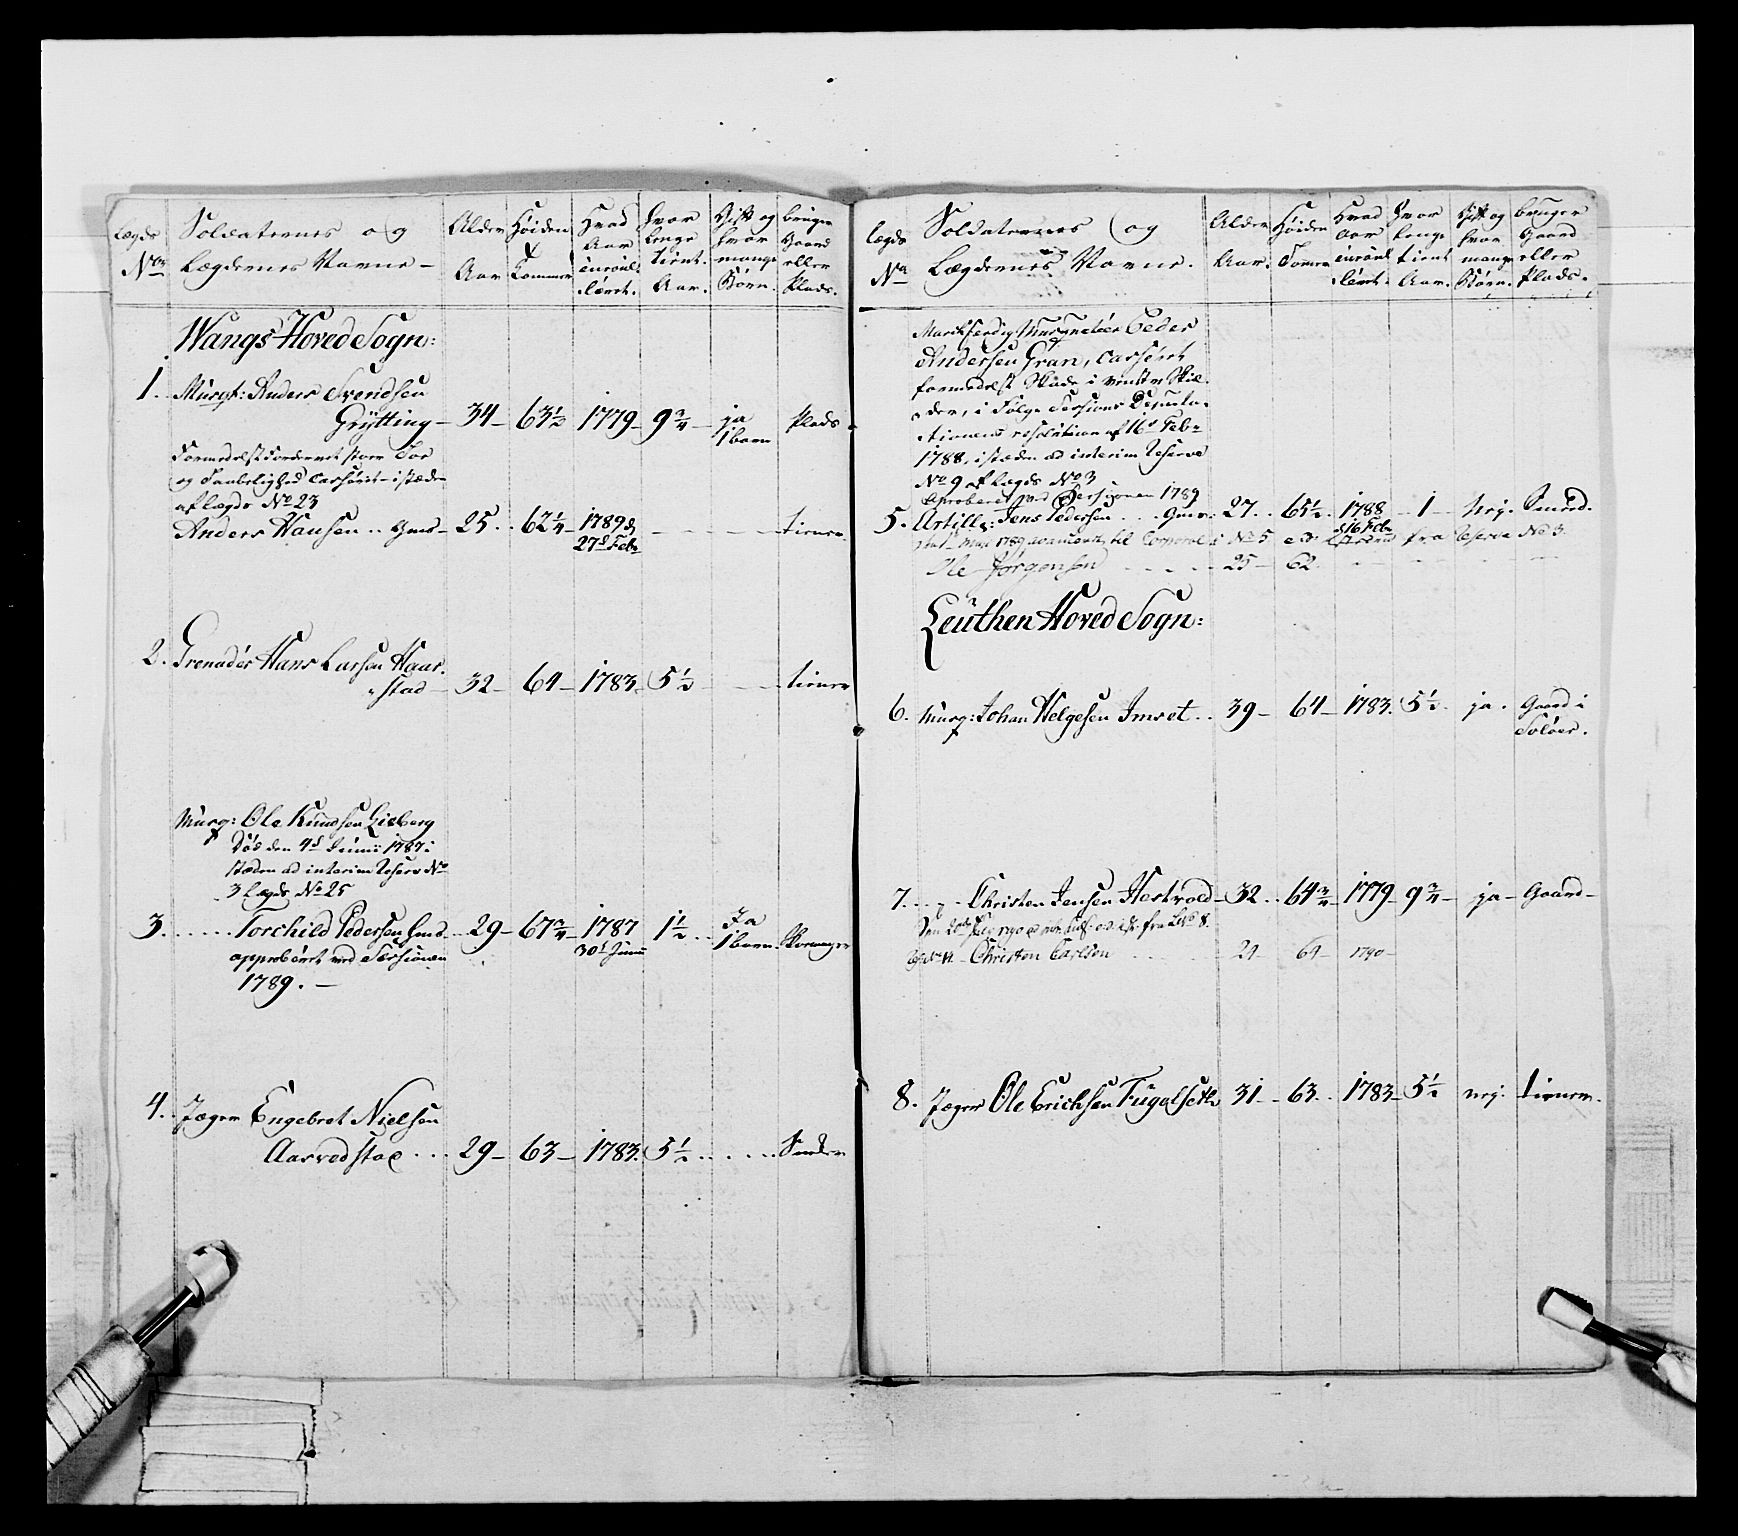 Lægds
No
Soldaternes og
Lægdernes Navne
Alder
Aar
Høiden
Tommer
Hvad
Aar
enroul-
leret.
hvor
lenge
tient.
Aar.
Gift og
hvor
mange
Børn.
bruger
Gaard
eller
Plads.
Wangs Hoved Sogn:
1. Musqt: Anders Svendsen
Grÿtting 34 63 1/2 1779 9 3/4 ja 1 barn Plads
og casseret i stæden
af Lægds No 23
Anders Hansen .. 25 .. 62 1/4 1789 d 27d Febr tiener
2. Grenadér Hans Larsen Haar-
stad 32 64 1783 5 1/2 tiener
Musq: Ole Knudsen Lisberg
Død den 4d Junii 1787 i
stæden ad interim Reserv No
3 Lægds No 25
3. Torchild Pedersen 29 67 3/4 1787 30d Junii 1 1/2 Ja 1 barn
approbéret ved Sessionen
1789.
4. Jæger Engebret Nielsen
Aarvedstad 29 63 1783 5 1/2
Lægds
No
Soldaternes og
Lægdernes Navne.
Alder
Aar.
Høiden
Tomer
Hvad
Aar
enroul-
léret.
Hvor
lenge
tient
Aar.
Gift og
hvor
mange
Børn.
bruger
Gaard
eller
Plads.
Musqueteer Peder
Andersen Gran, casséret
formedelst Skade i venstre Skul-
der, i Følge Sessions Deputa-
tionens resolution af 16d Febr
1788, i stæden ad interim Reserve
No 9 af Lægds No 3
Aproberet ved Sessionen 1789
5. Artille: Jens Pedersen 27 .. 65 1/2 1788 d 16 Feb 1 Nej.
1789 til Corporal i No 5 fra Reserve No 3
Ole Jørgensen 25 62
Leuthen Hoved Sogn:
6. Musq: Johan Helgesen Imset .. 39 64 1783. 5 1/2 ja. Gaard i
Soløer.
7. Christen Jensen Hestvold 32 .. 64 3/4 1779 9 3/4 ja Gaard
1790
Christen Carlsen 64 1790
8. Jæger Ole Erichsen Fuglseth 31 63 .. 1783 5 1/2 nej. tiener.